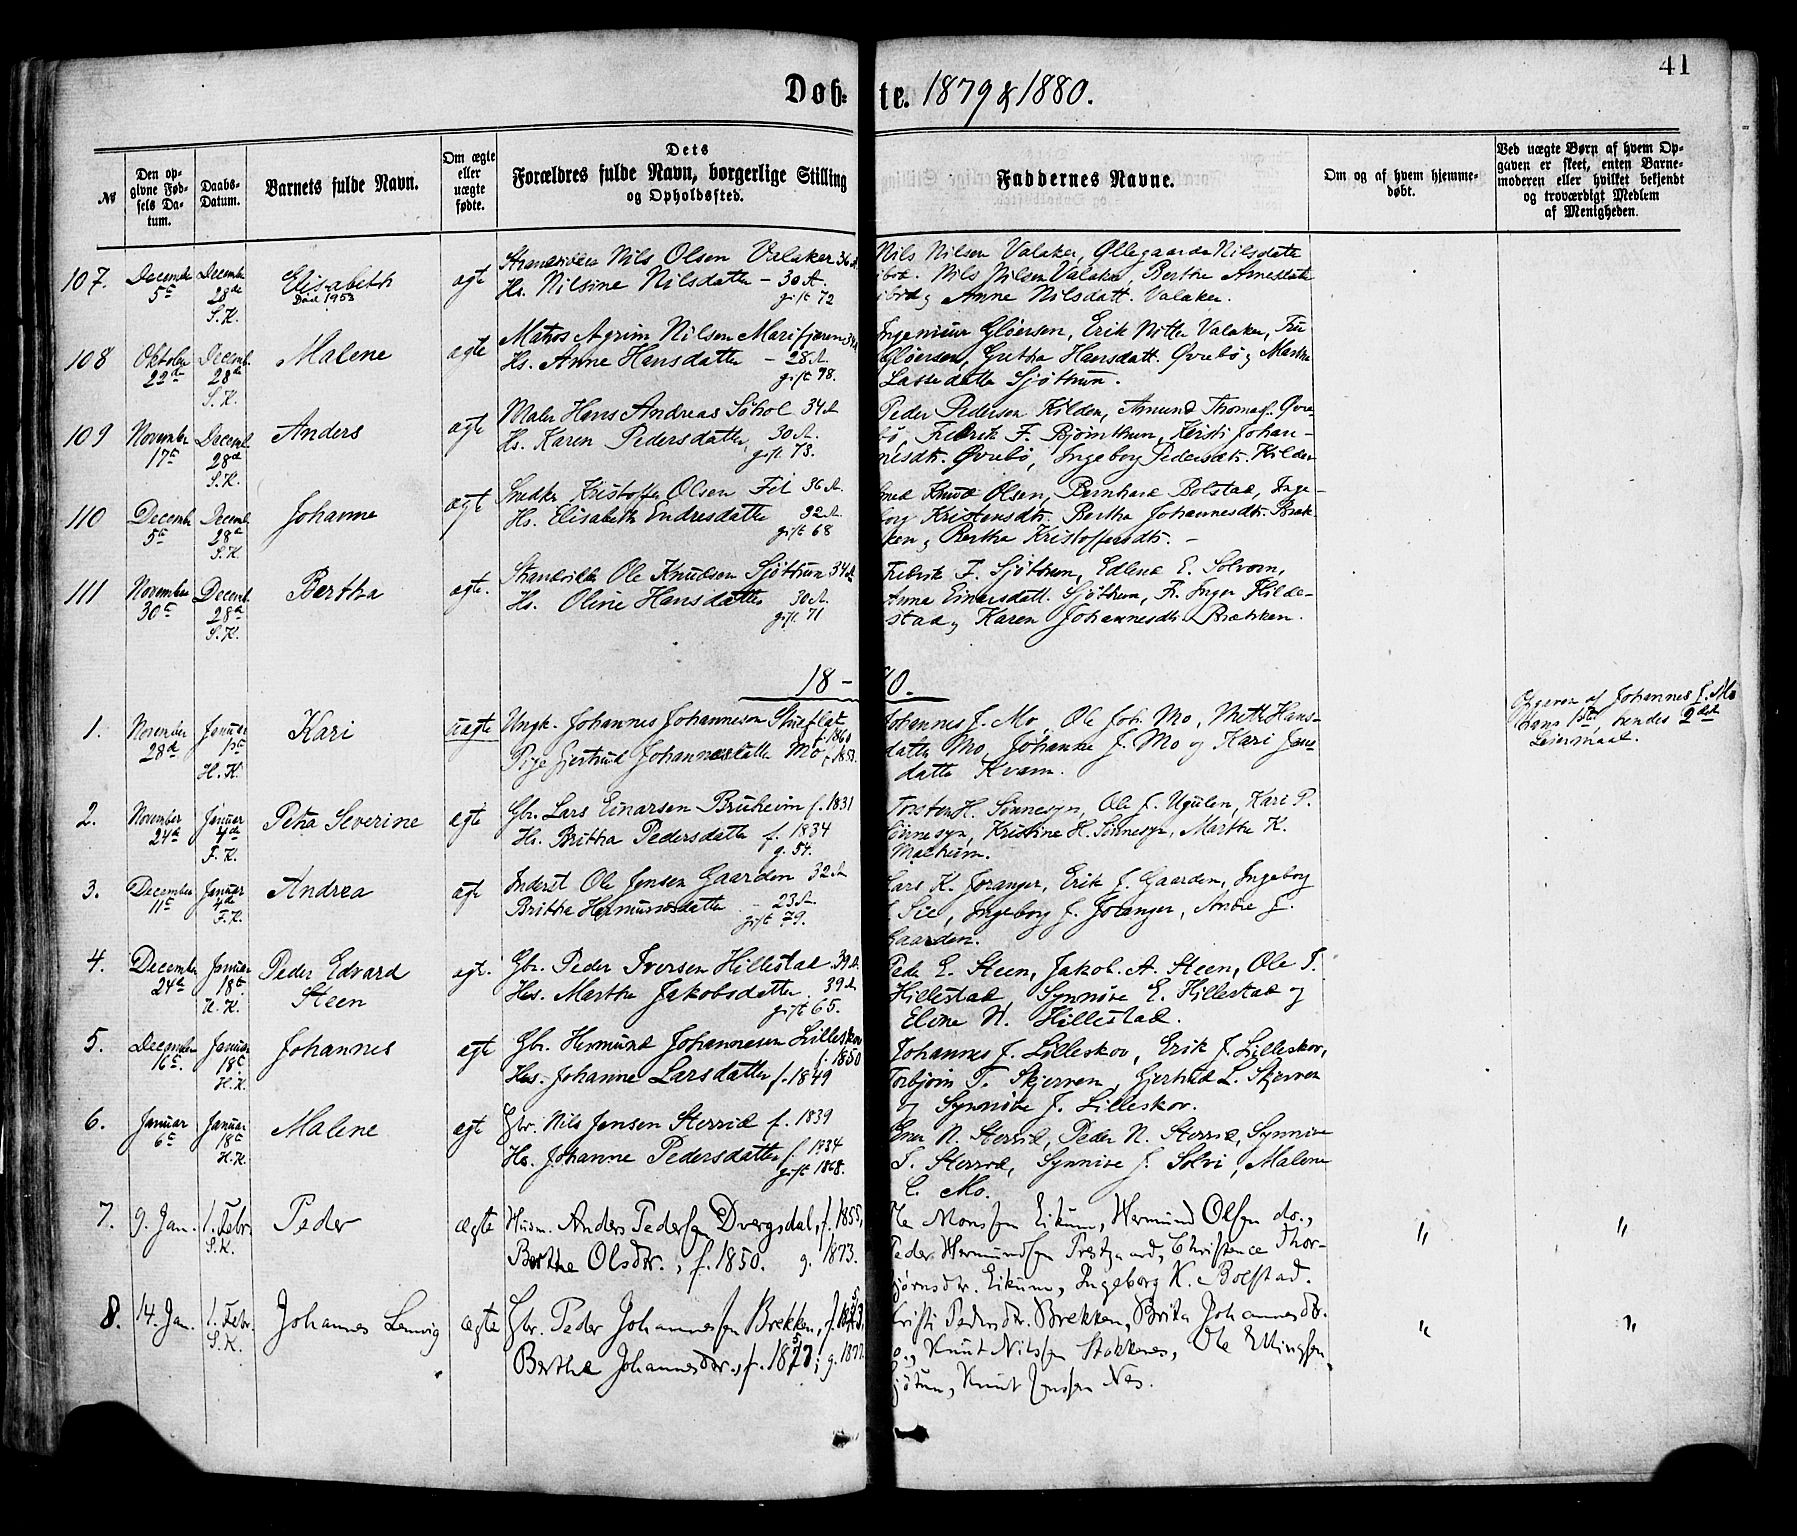 41
Døb-te. 1879 & 1880.
№
Den opgivne Fødsels Datum.
Daabs-Datum.
Barnets fulde Navn.
Om ægte eller uægte fødte.
Dets Forældres fulde Navn, borgerlige Stilling og Opholdssted.
Faddernes Navne.
Om og af hvem hjemmedøbt.
Ved uægte Børn af hvem Opgaven er skeet, enten Barnemoderen eller hvilket bekjendt og troværdigt Medlem af Menigheden.
107. Decembr 5te Decembr 28de S. K. Elisabeth Død 1953 ægte
Strandsidder Nils Olsen Valaker 36 A.
Hs. Nilsine Nilsdatter - 30 A.
gift 72
Nils Nilsen Valaker, Øllegaarda Nilsdatte
ibd. Nils Nilsen Valaker, Berthe Arnesdatt
ibid og Anne Nilsdatt. Valaker.
108 Oktober 22de Decemb. 28de S. K. Malene ægte
Matros Agrim Nilsen Marifjæren
Hs. Anne Hansdatter - 28 A.
gift 78.
Ingenieur Gløersen, Erik Valaker, Fru
Gløersen, Grethe Hansdatt. Øvrebø og Marthe
Lassedatter Sjøtun.
109 Novembr 17de Decemb. 28de S. K. Anders ægte
Maler Hans Andreas 34 A
Hs. Karen Pedersdatter, 30 A.
gift 73.
Peder Pedersen Kilden, Amund Thomas. Øvre-
bø, Fredrik F. Kersti Johan-
nesdtr. Øvrebø, Ingeborg Pedersdtr. Kilden
110 Decemb 5te Decemb. 28de S. K. Johanne ægte
Snedker Kristoffer Olsen 36 A.
Hs. Elisabeth Endresdatter 32 A.
gift 68
Smed Knud Olsen, Bernhard Bolstad, Inge-
borg Kristensdtr. Berthe Johannesdtr. Bræk-
ken og Berthe Kristoffersdtr. -
111 November 30te Decemb. 28de S. K. Bertha ægte.
Strandsidder Ole Knudsen Sjøtun 34 A
Hs. Oline Hansdatter 30 A.
gift 71
Fredrik F. Sjøtun, Edlend E. Solvorn,
Anna Einersdatt. Sjøtun, F. Inger Hilde-
stad og Karen Johannesdtr. Brækken.
18-80.
1. November 28de Januar 1ste H. K. Kari uægte
Ungk. Johannes Johannesen f. 1860
Pige Gjertrud Johannesdatter Mo,
Johannes J. Mo, Ole Joh. Mo, Mette Hans-
datter Mo, Johanne J. Mo og Kari
datter Kvam.
Opgaven af Johannes J. Mo
hans 1ste, hendes 2det
Leiermaal.
2. November 24de Januar 4de F. K. Petra Severine ægte
Gbr. Lars Einarsen Bruheim f. 1831
Hs. Britha Pedersdatter f. 1834
g. 54.
Torsten H. Sønnesyn, Ole J. Ugulen, Kari P.
Sønnesyn, Kristine H. Sønnesyn, Marthe K.
3. December 11te Januar 4de F. K. Andrea ægt
Inderst Ole Jensen Gaarden 32 A
Britha Hermundsdatter - 23 A.
gift 79.
Lars K. Joranger, Erik J. Gaarden, Ingeborg
Ingeborg J. Joranger, Andre J.
Gaarden.
4. December 24de Januar 18de H. K. Peder Edvard Steen ægt.
Gbr. Peder Iversen Hillestad 39 A.
Hs. Marthe Jakobsdatter, 39 A
gift 65.
Peder E. Steen, Jakob A. Steen, Ole T.
Hillestad, Synnøve E. Hillestad og
Eline N. Hillestad.
5. December 16te. Januar 18de H. K. Johannes ægt
Gbr. Hermund Johannesen Lilleskov f. 1850
Hs. Johanne Larsdatter f. 1849
Johannes J. Lilleskov, Erik J. Lilleskov,
Torbjørn T. Skjerven, Gjertrud L. Skjerven
og Synnøve J. Lilleskov.
6. Januar 6te Januar 18de H. K. Malene ægt
Gbr. Nils Jensen Sterrid f. 1839
Hs. Johanne Pedersdatter f. 1834
gift 1868.
Ener N. Sterrid, Peder N. Sterrid, Synnøve
T. Sterrod, Synnøve J. Solvi, Malene
C. Mo.
7. 9. Jan. 1. Febr. S. K. Peder ægte
Husm. Anders Pedersen Dvergsdal, f. 1855,
Berthe Olsdtr., f. 1850. g. 1873.
Ole Monssen Eikum, Hermund Olsen do.,
Peder Hermundsen Prestgaard, Christence Thor-
bjørnsdtr. Eikum, Ingeborg K. Bolstad.
" "
8. 14. Jan. 1. Febr. S. K. Johannes Lemvig ægte
Gbr. Peder Johannessen Brekken,
Berthe Johannesdtr.,
Kristi Pedersdtr. Brekken, Brita Johannesdtr.
do., Knut Nilssen Stokknes, Ole Ellingsen
Sjøtun, Knut Jenssen Nes.
" "